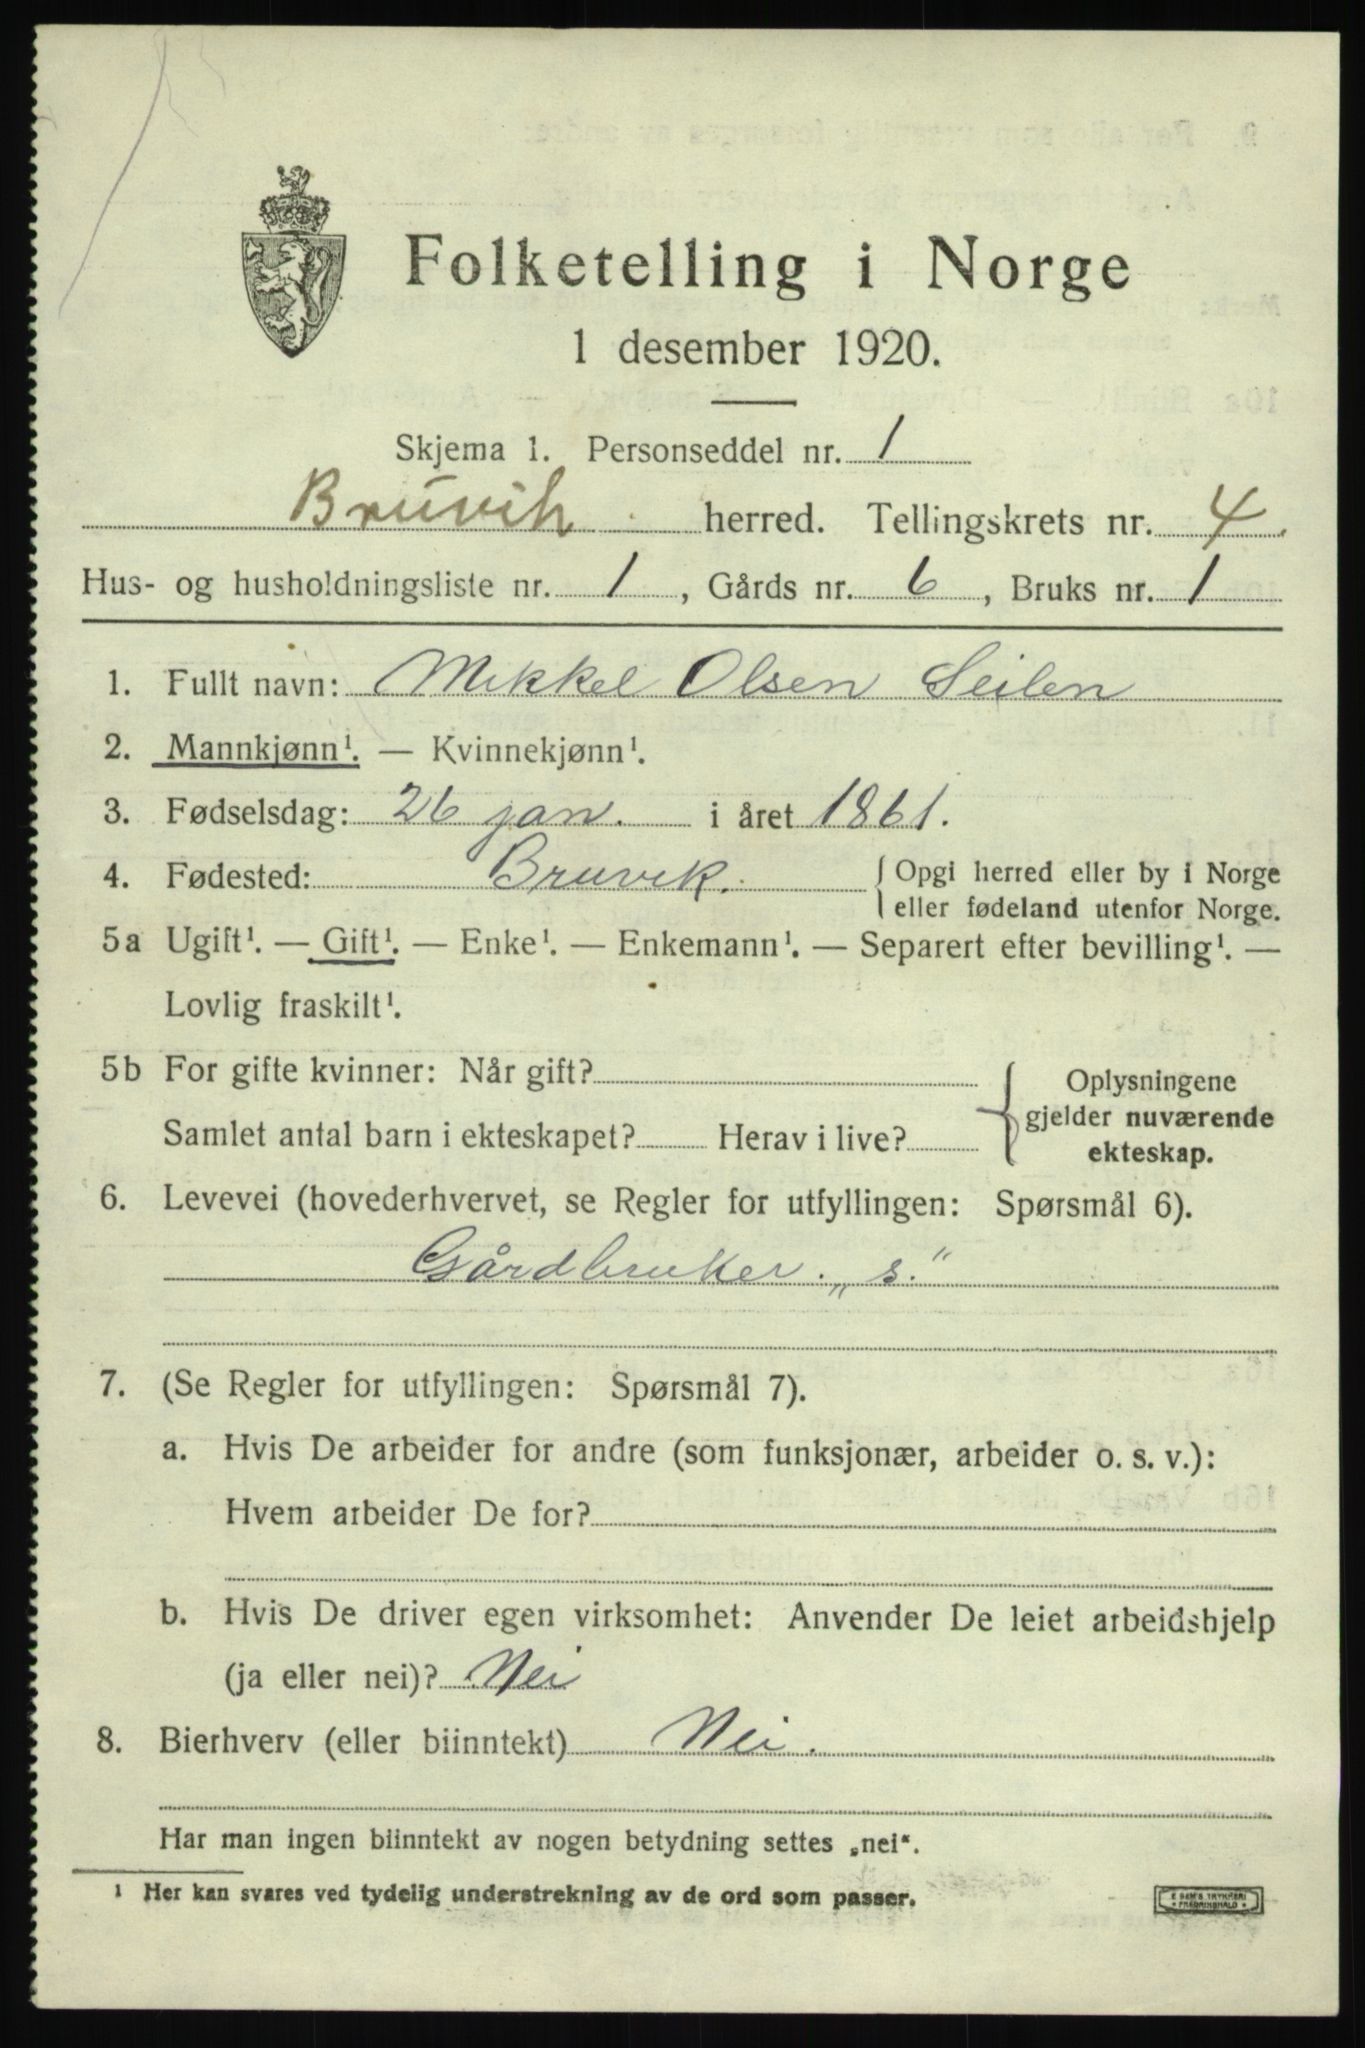 Folketelling i Norge
1 desember 1920.
Skjema 1. Personseddel nr. 1
Bruvik herred. Tellingskrets nr. 4.
Hus- og husholdningsliste nr. 1, Gårds nr. 6, Bruks nr. 1
1. Fullt navn: Mikkel Olsen Seilen
2. Mannkjønn¹. — Kvinnekjønn¹.
3. Fødselsdag: 26 jan. i året 1861.
4. Fødested: Bruvik. Opgi herred eller by i Norge
eller fødeland utenfor Norge.
5a Ugift¹. — Gift¹. — Enke¹. — Enkemann¹. — Separert efter bevilling¹. —
Lovlig fraskilt¹.
5b For gifte kvinner: Når gift?
Samlet antal barn i ekteskapet? Herav i live?
Oplysningene
gjelder nuværende
ekteskap.
6. Levevei (hovederhvervet, se Regler for utfyllingen: Spørsmål 6).
Gårdbruker. „s.“
7. (Se Regler for utfyllingen: Spørsmål 7).
a. Hvis De arbeider for andre (som funksjonær, arbeider o. s. v.):
Hvem arbeider De for?
b. Hvis De driver egen virksomhet: Anvender De leiet arbeidshjelp
(ja eller nei)? Nei
8. Bierhverv (eller biinntekt) Nei.
Har man ingen biinntekt av nogen betydning settes „nei“.
¹ Her kan svares ved tydelig understrekning av de ord som passer.
E SEM'S TRYKKERI
FREDRIKSHALD